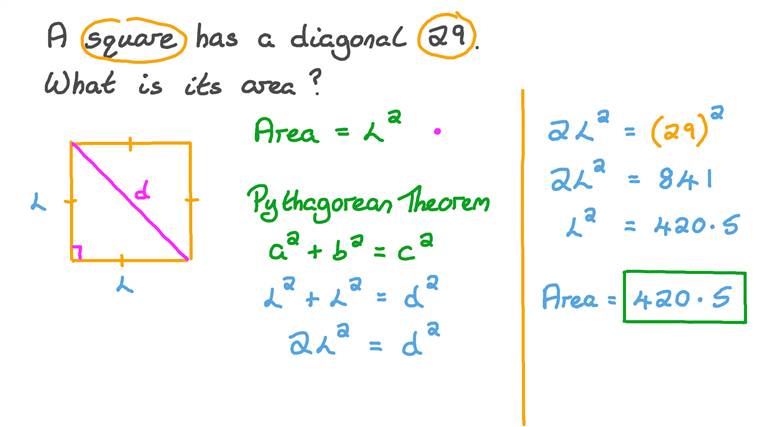 A square has a diagonal 29.
What is its area?
L
d
L
Area = L²
Pythagorean Theorem
a² + b² = c²
L² + L² = d²
2L² = d²
2L² = (29)²
2L² = 841
L² = 420·5
Area = 420·5